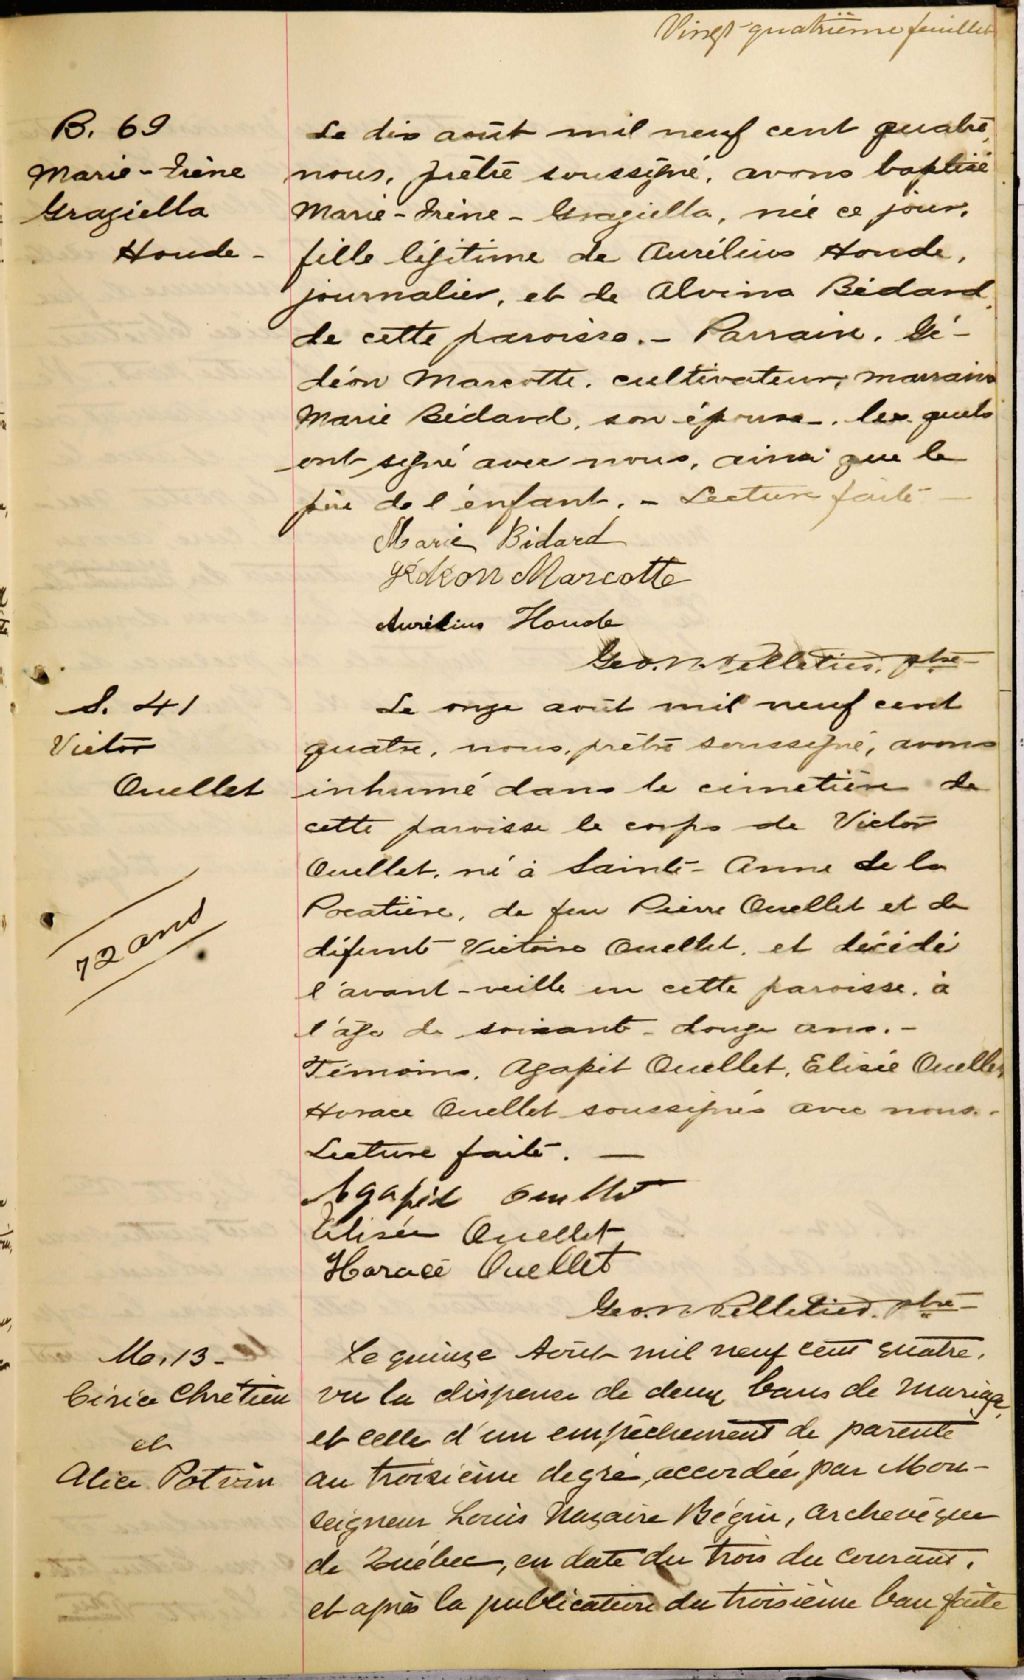 Vingt-quatrième feuillet
B. 69
Marie-Irène
Graziella
Houde -
Le dix août mil neuf cent quatre,
nous, prêtre soussigné, avons baptisé
Marie-Irène-Graziella, née ce jour,
fille légitime de Aurélius Houde,
journalier, et de Alvina Bédard,
de cette paroisse. - Parrain, Gé-
déon Marcotte, cultivateur, marraine
Marie Bédard, son épouse, les quels
ont signé avec nous, ainsi que le
père de l'enfant. - Lecture faite -
Marie Bidard
Gédéon Marcotte
Aurélius Houde
Geo. N. Pelletier, ptre -
S. 41
Victor
Ouellet
72 ans
Le onze août mil neuf cent
quatre, nous, prêtre soussigné, avons
inhumé dans le cimetière de
cette paroisse le corps de Victor
Ouellet, né à Sainte-Anne de la
Pocatière, de feu Pierre Ouellet et de
défunte Victoire Ouellet, et décédé
l'avant-veille en cette paroisse, à
l'âge de soixante-douze ans. -
Témoins, Agapit Ouellet, Elisée Ouellet,
Horace Ouellet soussignés avec nous. -
Lecture faite. -
Agapid Ouellet
Elisée Ouellet
Horace Ouellet
Geo. N. Pelletier, ptre -
M. 13 -
Chrétien
et
Alice Potvin
Le quinze Août mil neuf cent quatre,
vu la dispense de deux bans de mariage,
et celle d'un empêchement de parenté
au troisième degré, accordée par Mon-
seigneur Louis Nazaire Bégin, archevêque
de Québec, en date du trois du courant,
et après la publication du troisième ban faite